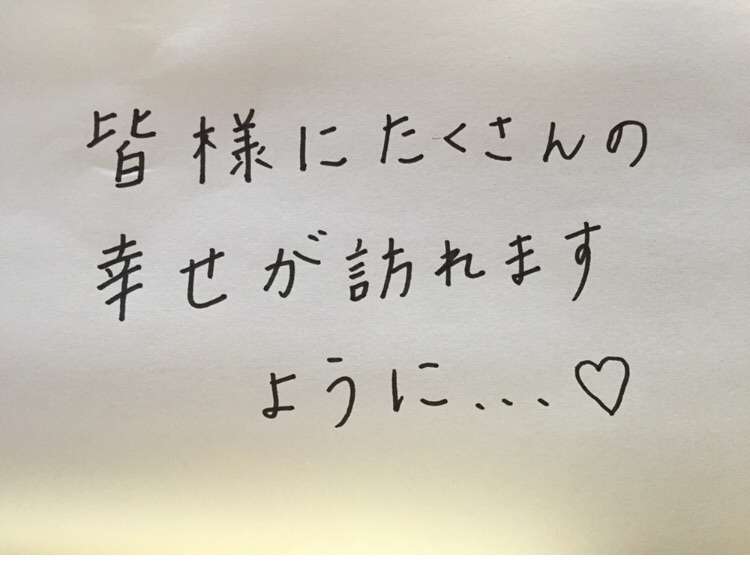 皆様にたくさんの
幸せが訪れます
ように...♡